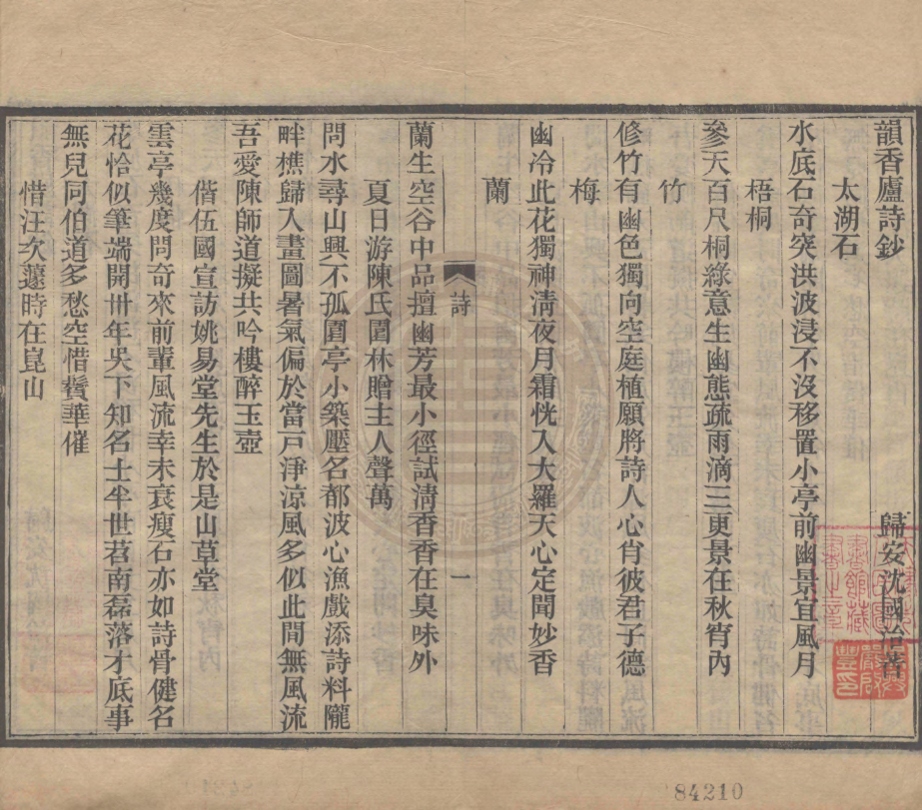 韻香廬詩鈔
歸安沈國治著
太湖石
水底石奇突洪波浸不沒移置小亭前幽景宜風月
梧桐
參天百尺桐綠意生幽態疏雨滴三更景在秋宵內
竹
修竹有幽色獨向空庭植願將詩人心肖彼君子德
梅
幽冷此花獨神清夜月霜恍入大羅天心定聞妙香
蘭
詩 一
蘭生空谷中品擅幽芳最小徑試清香香在臭味外
夏日游陳氏園林贈主人聲萬
問水尋山興不孤園亭小築壓名都波心漁戲添詩料隴
畔樵歸入畫圖暑氣偏於當戸淨涼風多似此間無風流
吾愛陳師道擬共吟樓醉玉壺
偕伍國宣訪姚易堂先生於是山草堂
雲亭幾度問奇來前輩風流幸未衰瘦石亦如詩骨健名
花恰似筆端開卅年吳下知名士半世苕南磊落才底事
無兒同伯道多愁空惜鬢華催
惜汪次蘧時在崑山
84210